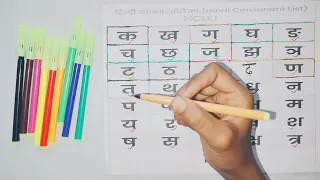 हिन्दी व्यंजन तालिका (Hindi Consonant List)
क ख ग घ ङ
च छ ज झ ञ
ट ठ ढ ण
त थ ध न
प म
य र श
ष स त्र